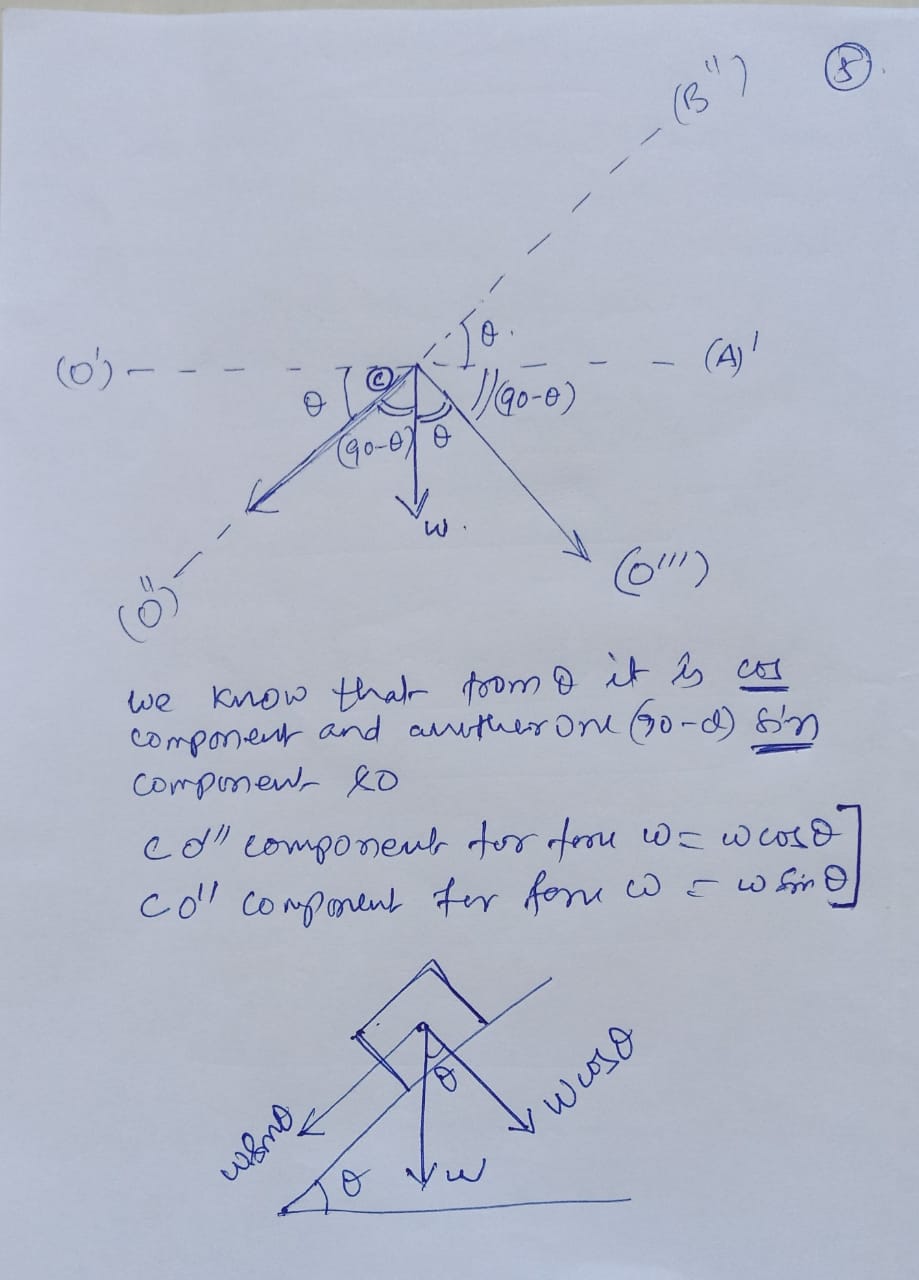 (B'')
(8)
(O')
(A)'
θ
θ
(90-θ)
©
(90-θ)
θ
w.
(O'')
(O''')
we know that from θ it is cos
component and another one (90-θ) sin
component so
CO''' component for force w = w cosθ
CO'' component for force w = w sinθ
wsinθ
θ
w cosθ
θ
w